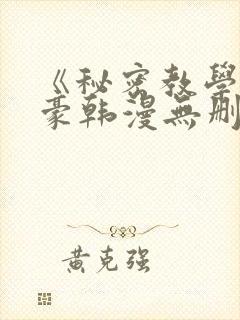 《秘密教學
豪韩漫無刪
黄克强